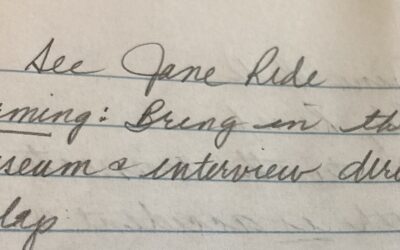 See Jane Ride
rming: Bring in th
seum & interview dire
lap